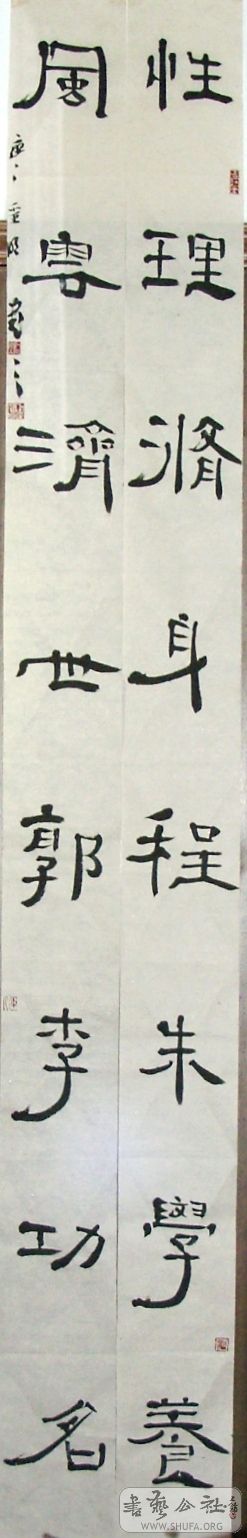 性理脩身程朱學養
風雲濟世郭李功名
書藝公社
WWW.SHUFA.ORG